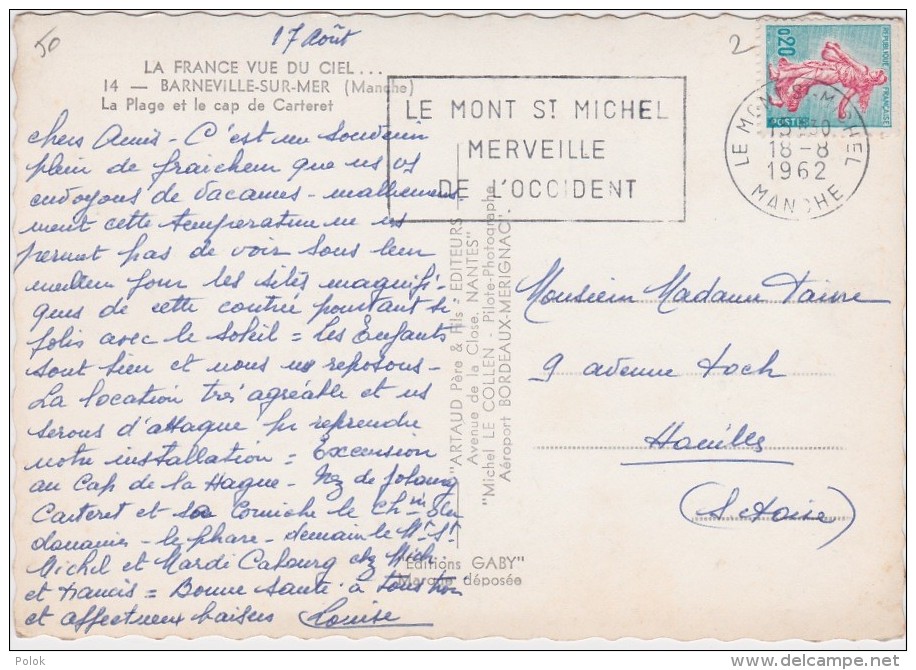 50
17 Août
2
LA FRANCE VUE DU CIEL...
14 — BARNEVILLE-SUR-MER (Manche)
La Plage et le cap de Carteret
chers Amis - C'est un souvenir
plein de fraicheur que ns vs
envoyons de vacances - malheureuse
ment cette température ne ns
permet pas de voir sous leur
meilleur jour les sites magnifi-
ques de cette contrée pourtant si
jolis avec le soleil = Les Enfants
sont bien et nous ns reposons -
La location très agréable et ns
serons d'attaque pr reprendre
notre installation = Excursion
au Cap de la Hague - Nez de Jobourg
Carteret et sa Corniche le chin des
douaniers - le phare - demain le Mt St
Michel et Mardi Cabourg chez Mich
et Francis = Bonne Santé à tous
et affectueux baisers Louise
LE MONT ST MICHEL
MERVEILLE
DE L'OCCIDENT
REPUBLIQUE FRANÇAISE
0,20
POSTES
LE MONT-ST-MICHEL
18-8
1962
MANCHE
"ARTAUD Père & Fils - EDITEURS"
Avenue de la Close, NANTES"
"Michel LE COLLEN - Pilote-Photographe
Aéroport BORDEAUX-MERIGNAC"
"Editions GABY"
Marque déposée
Monsieur Madame Faivre
9 avenue Foch
Houilles
(S et Oise)
Polok
delcampe.net